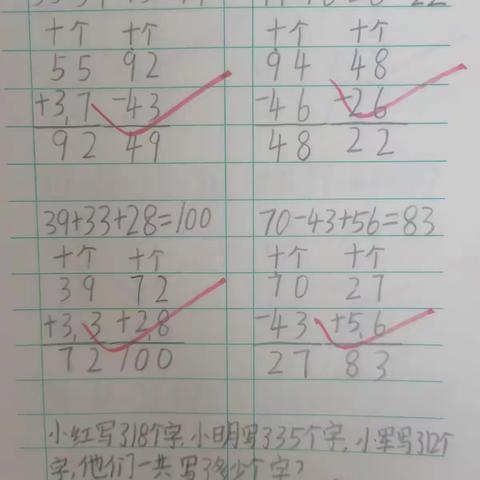 十个 十个 十个 十个
55 92 94 48
+3,7 -43 -46 -26
92 49 48 22
39+33+28=100 70-43+56=83
十个 十个 十个 十个
39 72 70 27
+3,3 +2,8 -43 +5,6
72 100 27 83
小红写318个字,小明写335个字,小军写312个
字,他们一共写了多少个字?